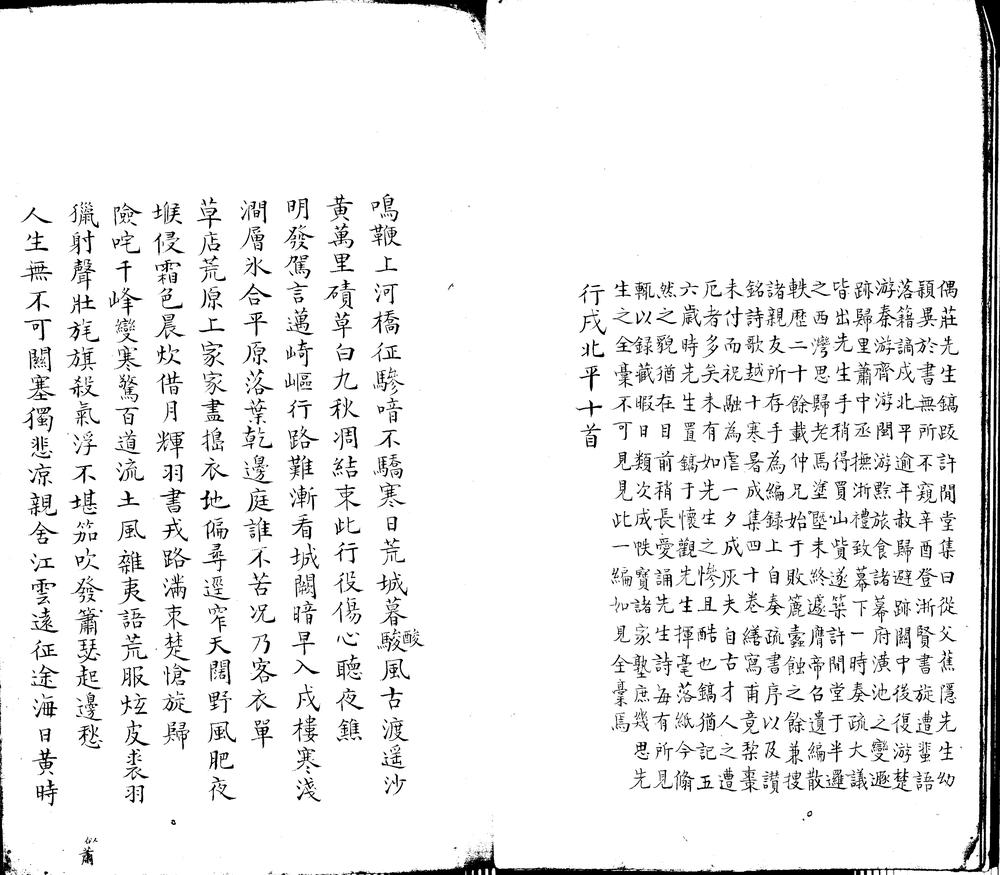 偶莊先生鎬跋許閒堂集曰從父蕉隱先生幼
穎異於書無所不窺辛酉登浙賢書旋遭蜚語
落籍謫戍北平逾年赦歸避跡關中後復游楚
游秦游齊游閩游黔旅食諸幕府潢池之變遯
跡歸里蕭中丞撫浙禮致幕下一時奏疏大議
皆出先生手稍得買山貲遂築許閒堂于半邏
之西灣思歸老焉塗塈未終遽膺帝召遺編散
軼歷二十餘載仲兄始于敗簏蠹蝕之餘兼搜
諸親友所存手為編錄上自奏疏書序以及讃
銘詩歌越十寒暑成集四十卷繕寫甫竟梨棗
未付而祝融為虐一夕成灰夫自古才人之遭
厄者多矣未有如先生之慘且酷也鎬猶記五
六歲時先生置鎬于懷觀先生揮毫落紙今翛
然之貌猶在目前稍長愛誦先生詩每有所見
輒以録藏暇日類次成帙寶諸家塾庶幾思先
生之全稾不可見見此一編如見全稾焉
行戍北平十首
鳴鞭上河橋征驂喑不驕寒日荒城暮駿風古渡遥沙
酸
黃萬里磧草白九秋凋結束此行役傷心聽夜鐎
明發駕言邁崎嶇行路難漸看城闕暗早入戍樓寒淺
澗層氷合平原落葉乾邊庭誰不苦况乃客衣單
草店荒原上家家畫搗衣地偏尋逕窄天闊野風肥夜
堠侵霜色晨炊借月輝羽書戎路滿束楚愴旋歸
險咤千峰變寒驚百道流土風雜夷語荒服炫皮裘羽
獵射聲壯旄旗殺氣浮不堪笳吹發簫瑟起邊愁
人生無不可關塞獨悲凉親舍江雲遠征途海日黃時
似蕭